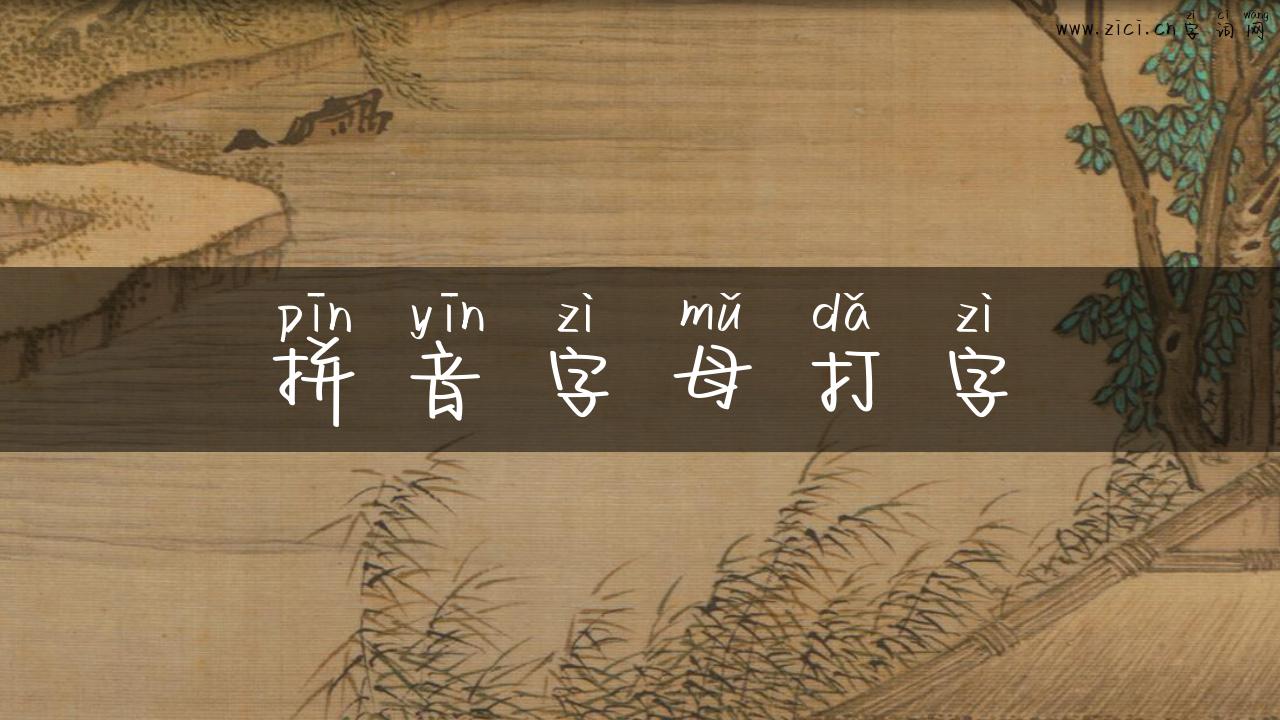 zì cí wǎng
www.zici.cn 字 词 网
pīn yīn zì mǔ dǎ zì
拼 音 字 母 打 字